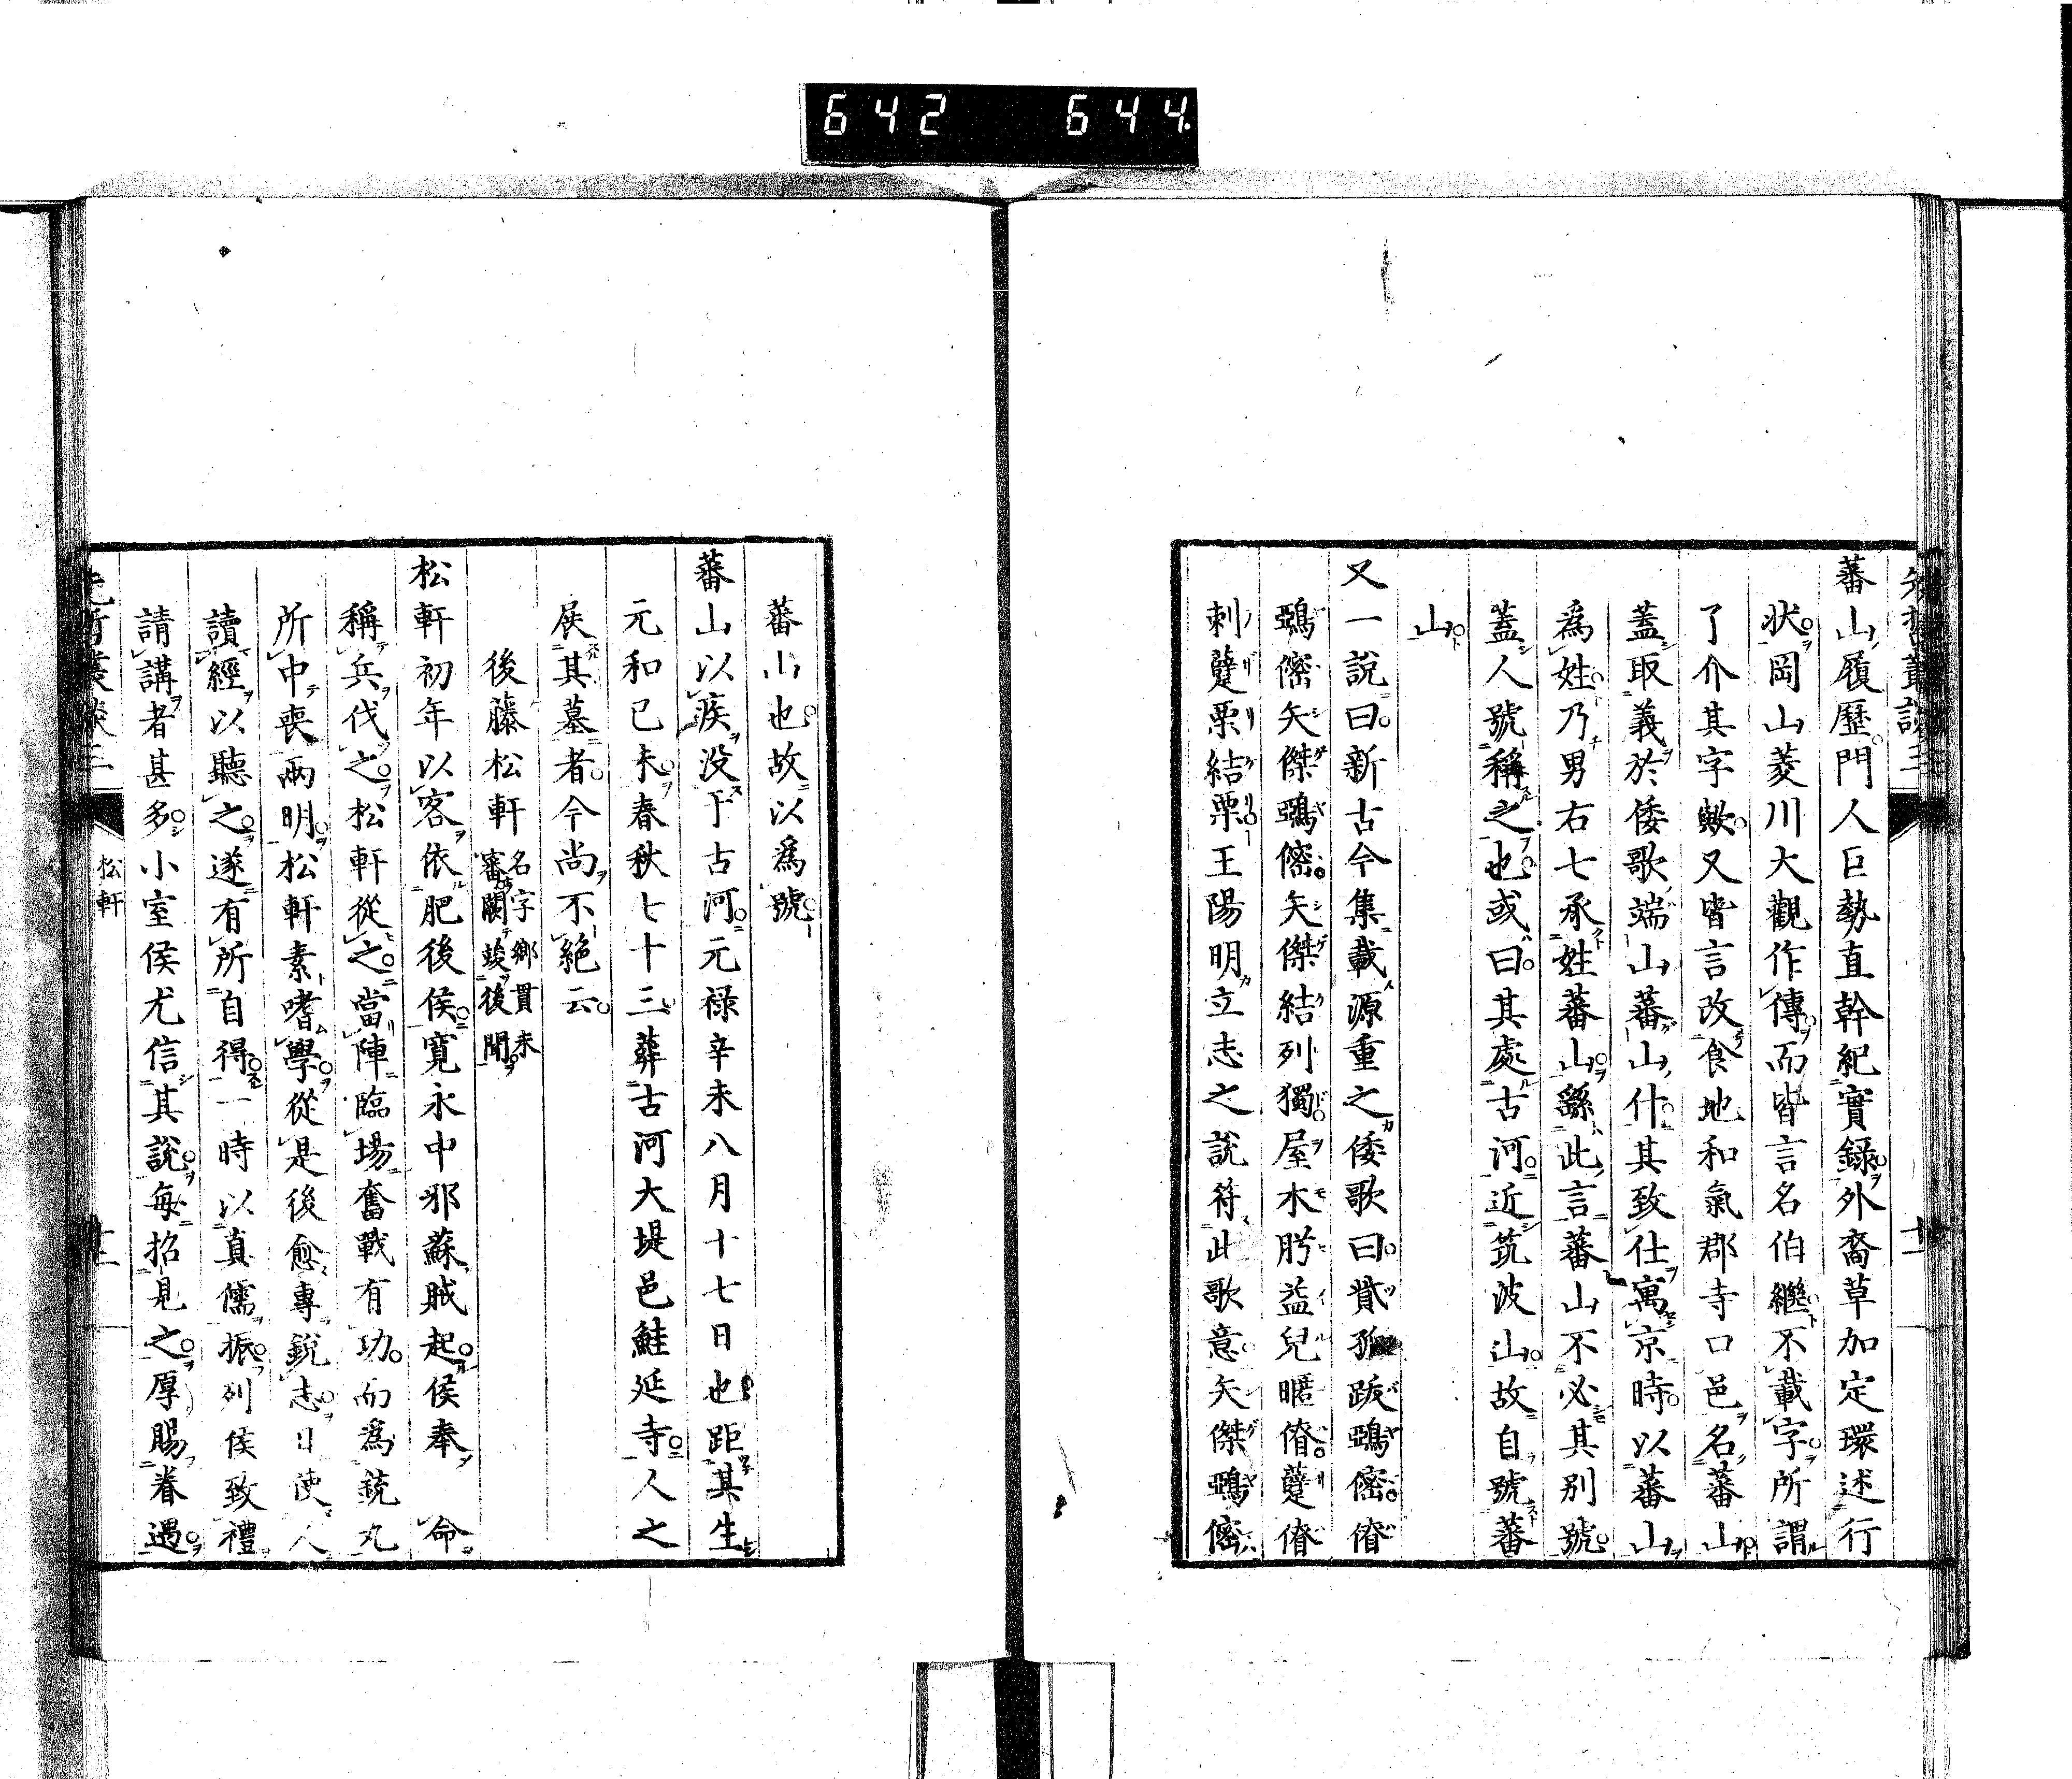 642 644
蕃山履歷門人巨勢直幹紀實錄外裔草加定環述行
狀岡山菱川大觀作傳而皆言名伯繼不載字所謂
了介其字歟又皆言改食地和氣郡寺口邑名蕃山
蓋取義於倭歌端山蕃山什其致仕寓京時以蕃山
為姓乃男右七承姓蕃山繇此言蕃山不必其別號
蓋人號稱之也或曰其處古河近筑波山故自號蕃
山
又一說曰新古今集載源重之倭歌曰
結列獨屋木
王陽明立志之說符此歌意
蕃山也故以為號
蕃山以疾没于古河元祿辛未八月十七日也距其生
元和己未春秋七十三葬古河大堤邑鮭延寺人之
展其墓者今尚不絕云
後藤松軒 名字鄉貫未審闕竢後聞
松軒初年以客依肥後侯寬永中邪蘇賊起侯奉 命
稱兵伐之松軒從之當陣臨場奮戰有功而為銃丸
所中喪兩明松軒素嗜學從是後愈專銳志日使人
讀經以聽之遂有所自得一時以真儒振列侯致禮
請講者甚多小室侯尤信其說每招見之厚賜眷遇
松軒